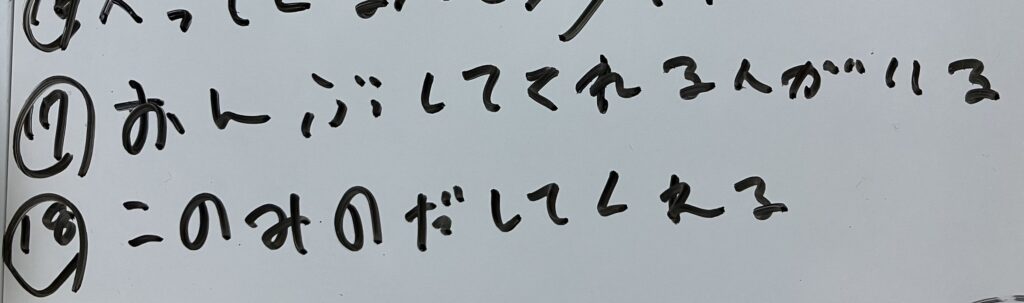 ⑰おんぶしてくれる人がいる
⑱このみのだしてくれる